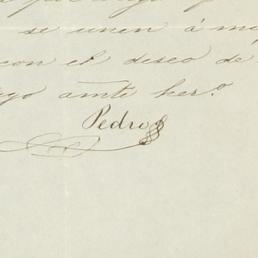 se unen á mi
con el deseo de
amte her.o
Pedro